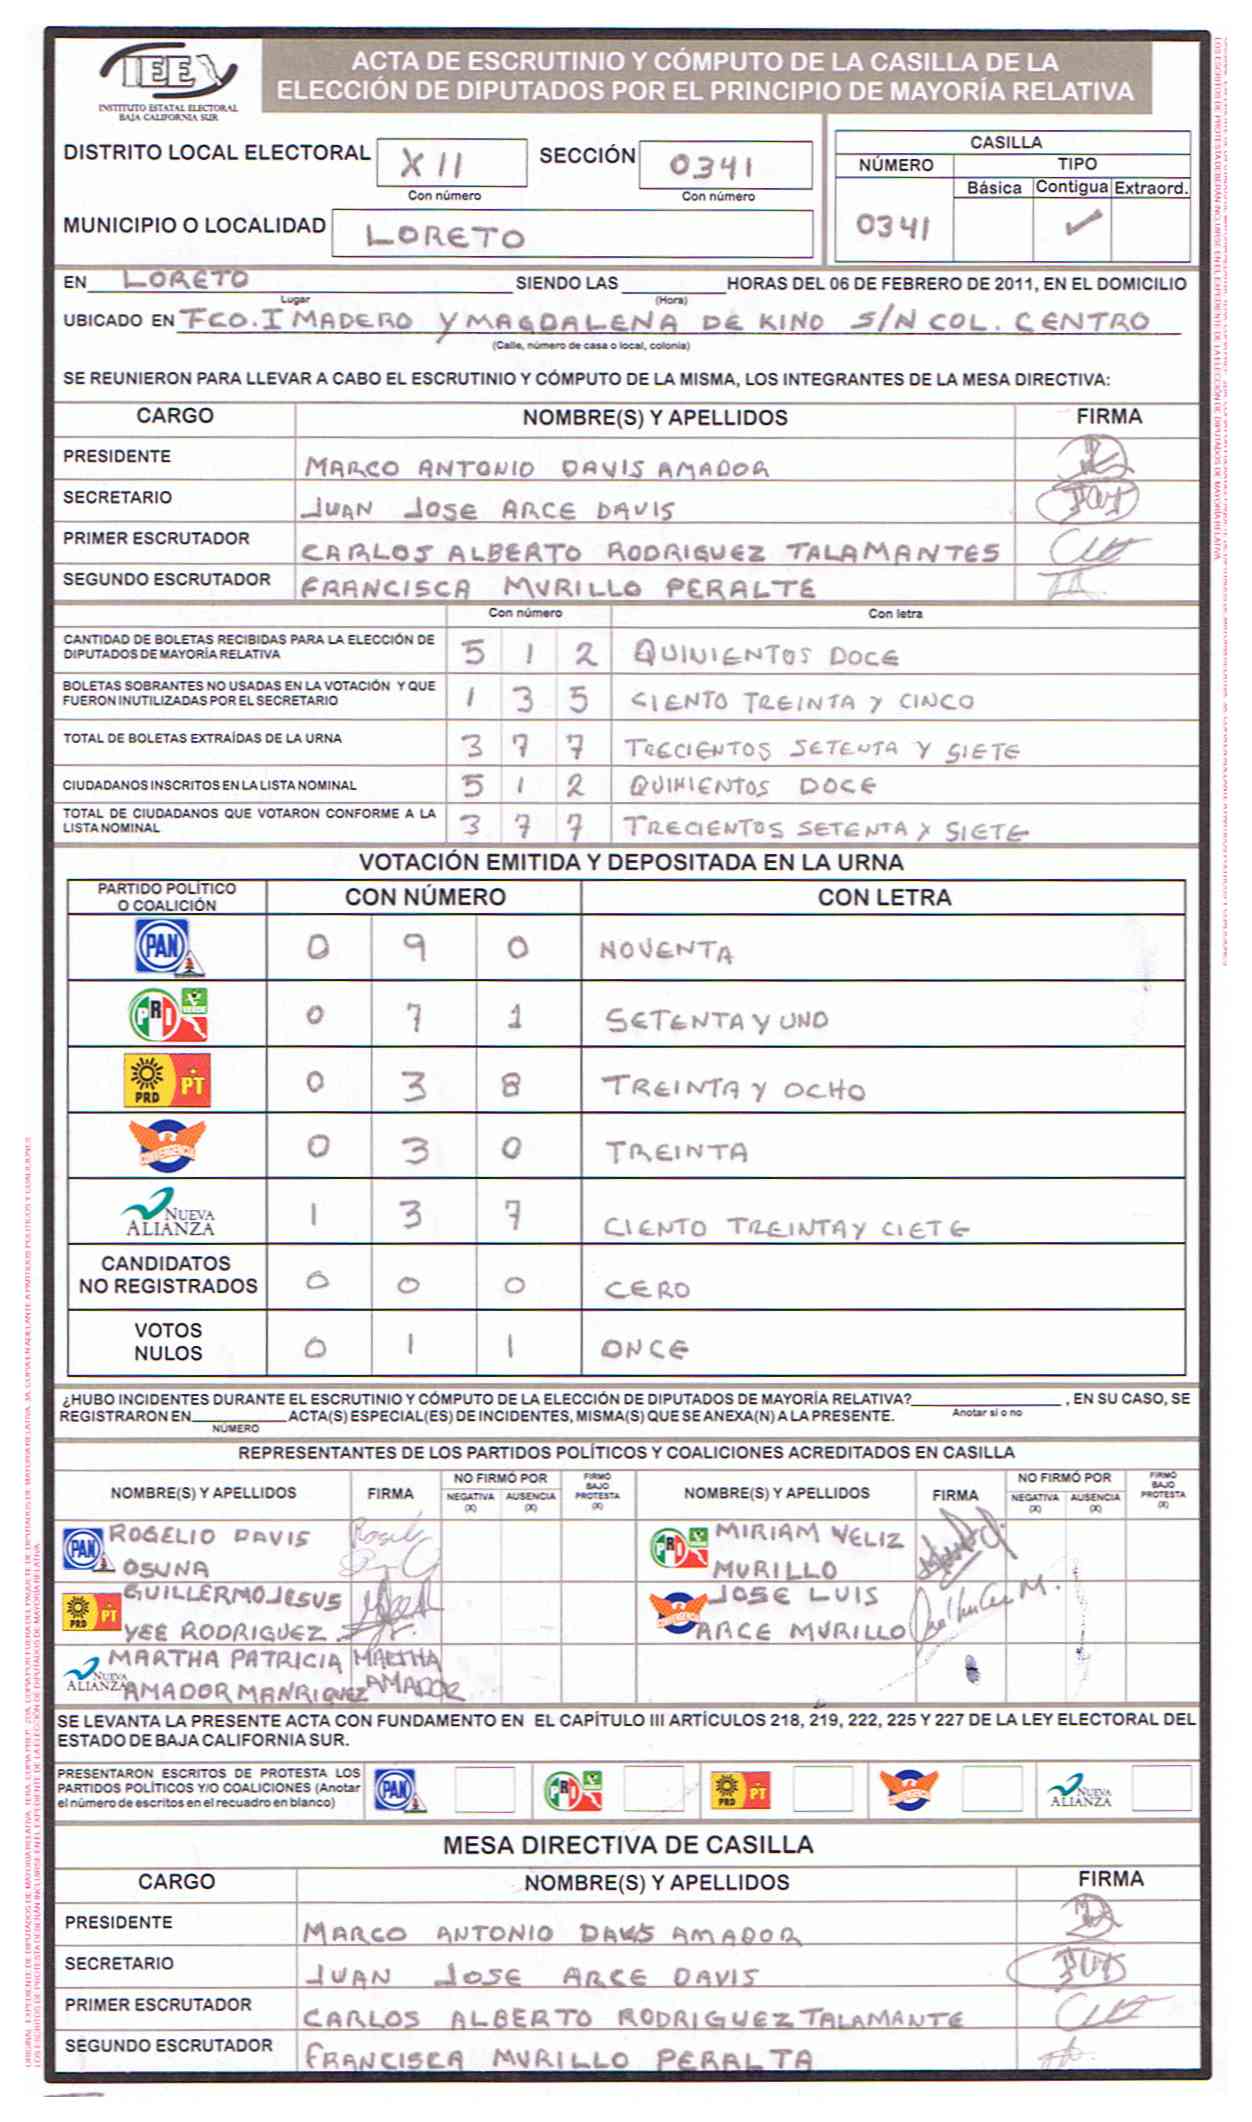 IEEX
INSTITUTO ESTATAL ELECTORAL
BAJA CALIFORNIA SUR
ACTA DE ESCRUTINIO Y CÓMPUTO DE LA CASILLA DE LA
ELECCIÓN DE DIPUTADOS POR EL PRINCIPIO DE MAYORÍA RELATIVA
DISTRITO LOCAL ELECTORAL XII SECCIÓN 0341
Con número Con número
MUNICIPIO O LOCALIDAD LORETO
CASILLA
NÚMERO TIPO
Básica Contigua Extraord.
0341 ✓
EN LORETO SIENDO LAS HORAS DEL 06 DE FEBRERO DE 2011, EN EL DOMICILIO
Lugar (Hora)
UBICADO EN FCO. I MADERO Y MAGDALENA DE KINO S/N COL. CENTRO
(Calle, número de casa o local, colonia)
SE REUNIERON PARA LLEVAR A CABO EL ESCRUTINIO Y CÓMPUTO DE LA MISMA, LOS INTEGRANTES DE LA MESA DIRECTIVA:
CARGO NOMBRE(S) Y APELLIDOS FIRMA
PRESIDENTE MARCO ANTONIO DAVIS AMADOR
SECRETARIO JUAN JOSE ARCE DAVIS
PRIMER ESCRUTADOR CARLOS ALBERTO RODRIGUEZ TALAMANTES
SEGUNDO ESCRUTADOR FRANCISCA MURILLO PERALTE
Con número Con letra
CANTIDAD DE BOLETAS RECIBIDAS PARA LA ELECCIÓN DE
DIPUTADOS DE MAYORÍA RELATIVA 5 1 2 QUINIENTOS DOCE
BOLETAS SOBRANTES NO USADAS EN LA VOTACIÓN Y QUE
FUERON INUTILIZADAS POR EL SECRETARIO 1 3 5 CIENTO TREINTA Y CINCO
TOTAL DE BOLETAS EXTRAÍDAS DE LA URNA 3 7 7 TRECIENTOS SETENTA Y SIETE
CIUDADANOS INSCRITOS EN LA LISTA NOMINAL 5 1 2 QUINIENTOS DOCE
TOTAL DE CIUDADANOS QUE VOTARON CONFORME A LA
LISTA NOMINAL 3 7 7 TRECIENTOS SETENTA Y SIETE
VOTACIÓN EMITIDA Y DEPOSITADA EN LA URNA
PARTIDO POLÍTICO
O COALICIÓN CON NÚMERO CON LETRA
PAN 0 9 0 NOVENTA
PRI VERDE 0 7 1 SETENTA Y UNO
PRD PT 0 3 8 TREINTA Y OCHO
CONVERGENCIA 0 3 0 TREINTA
NUEVA ALIANZA 1 3 7 CIENTO TREINTA Y CIETE
CANDIDATOS
NO REGISTRADOS 0 0 0 CERO
VOTOS
NULOS 0 1 1 ONCE
¿HUBO INCIDENTES DURANTE EL ESCRUTINIO Y CÓMPUTO DE LA ELECCIÓN DE DIPUTADOS DE MAYORÍA RELATIVA? , EN SU CASO, SE
Anotar sí o no
REGISTRARON EN ACTA(S) ESPECIAL(ES) DE INCIDENTES, MISMA(S) QUE SE ANEXA(N) A LA PRESENTE.
NÚMERO
REPRESENTANTES DE LOS PARTIDOS POLÍTICOS Y COALICIONES ACREDITADOS EN CASILLA
NOMBRE(S) Y APELLIDOS FIRMA NO FIRMÓ POR NEGATIVA (X) AUSENCIA (X) FIRMÓ BAJO PROTESTA (X) NOMBRE(S) Y APELLIDOS FIRMA NO FIRMÓ POR NEGATIVA (X) AUSENCIA (X) FIRMÓ BAJO PROTESTA (X)
PAN ROGELIO DAVIS OSUNA PRI MIRIAM VELIZ MURILLO
PRD PT GUILLERMO JESUS YEE RODRIGUEZ. CONVERGENCIA JOSE LUIS ARCE MURILLO
NUEVA ALIANZA MARTHA PATRICIA AMADOR MANRIQUEZ MARTHA AMADOR
SE LEVANTA LA PRESENTE ACTA CON FUNDAMENTO EN EL CAPÍTULO III ARTÍCULOS 218, 219, 222, 225 Y 227 DE LA LEY ELECTORAL DEL
ESTADO DE BAJA CALIFORNIA SUR.
PRESENTARON ESCRITOS DE PROTESTA LOS
PARTIDOS POLÍTICOS Y/O COALICIONES (Anotar
el número de escritos en el recuadro en blanco) PAN PRI PRD PT CONVERGENCIA NUEVA ALIANZA
MESA DIRECTIVA DE CASILLA
CARGO NOMBRE(S) Y APELLIDOS FIRMA
PRESIDENTE MARCO ANTONIO DAVIS AMADOR
SECRETARIO JUAN JOSE ARCE DAVIS
PRIMER ESCRUTADOR CARLOS ALBERTO RODRIGUEZ TALAMANTE
SEGUNDO ESCRUTADOR FRANCISCA MURILLO PERALTA